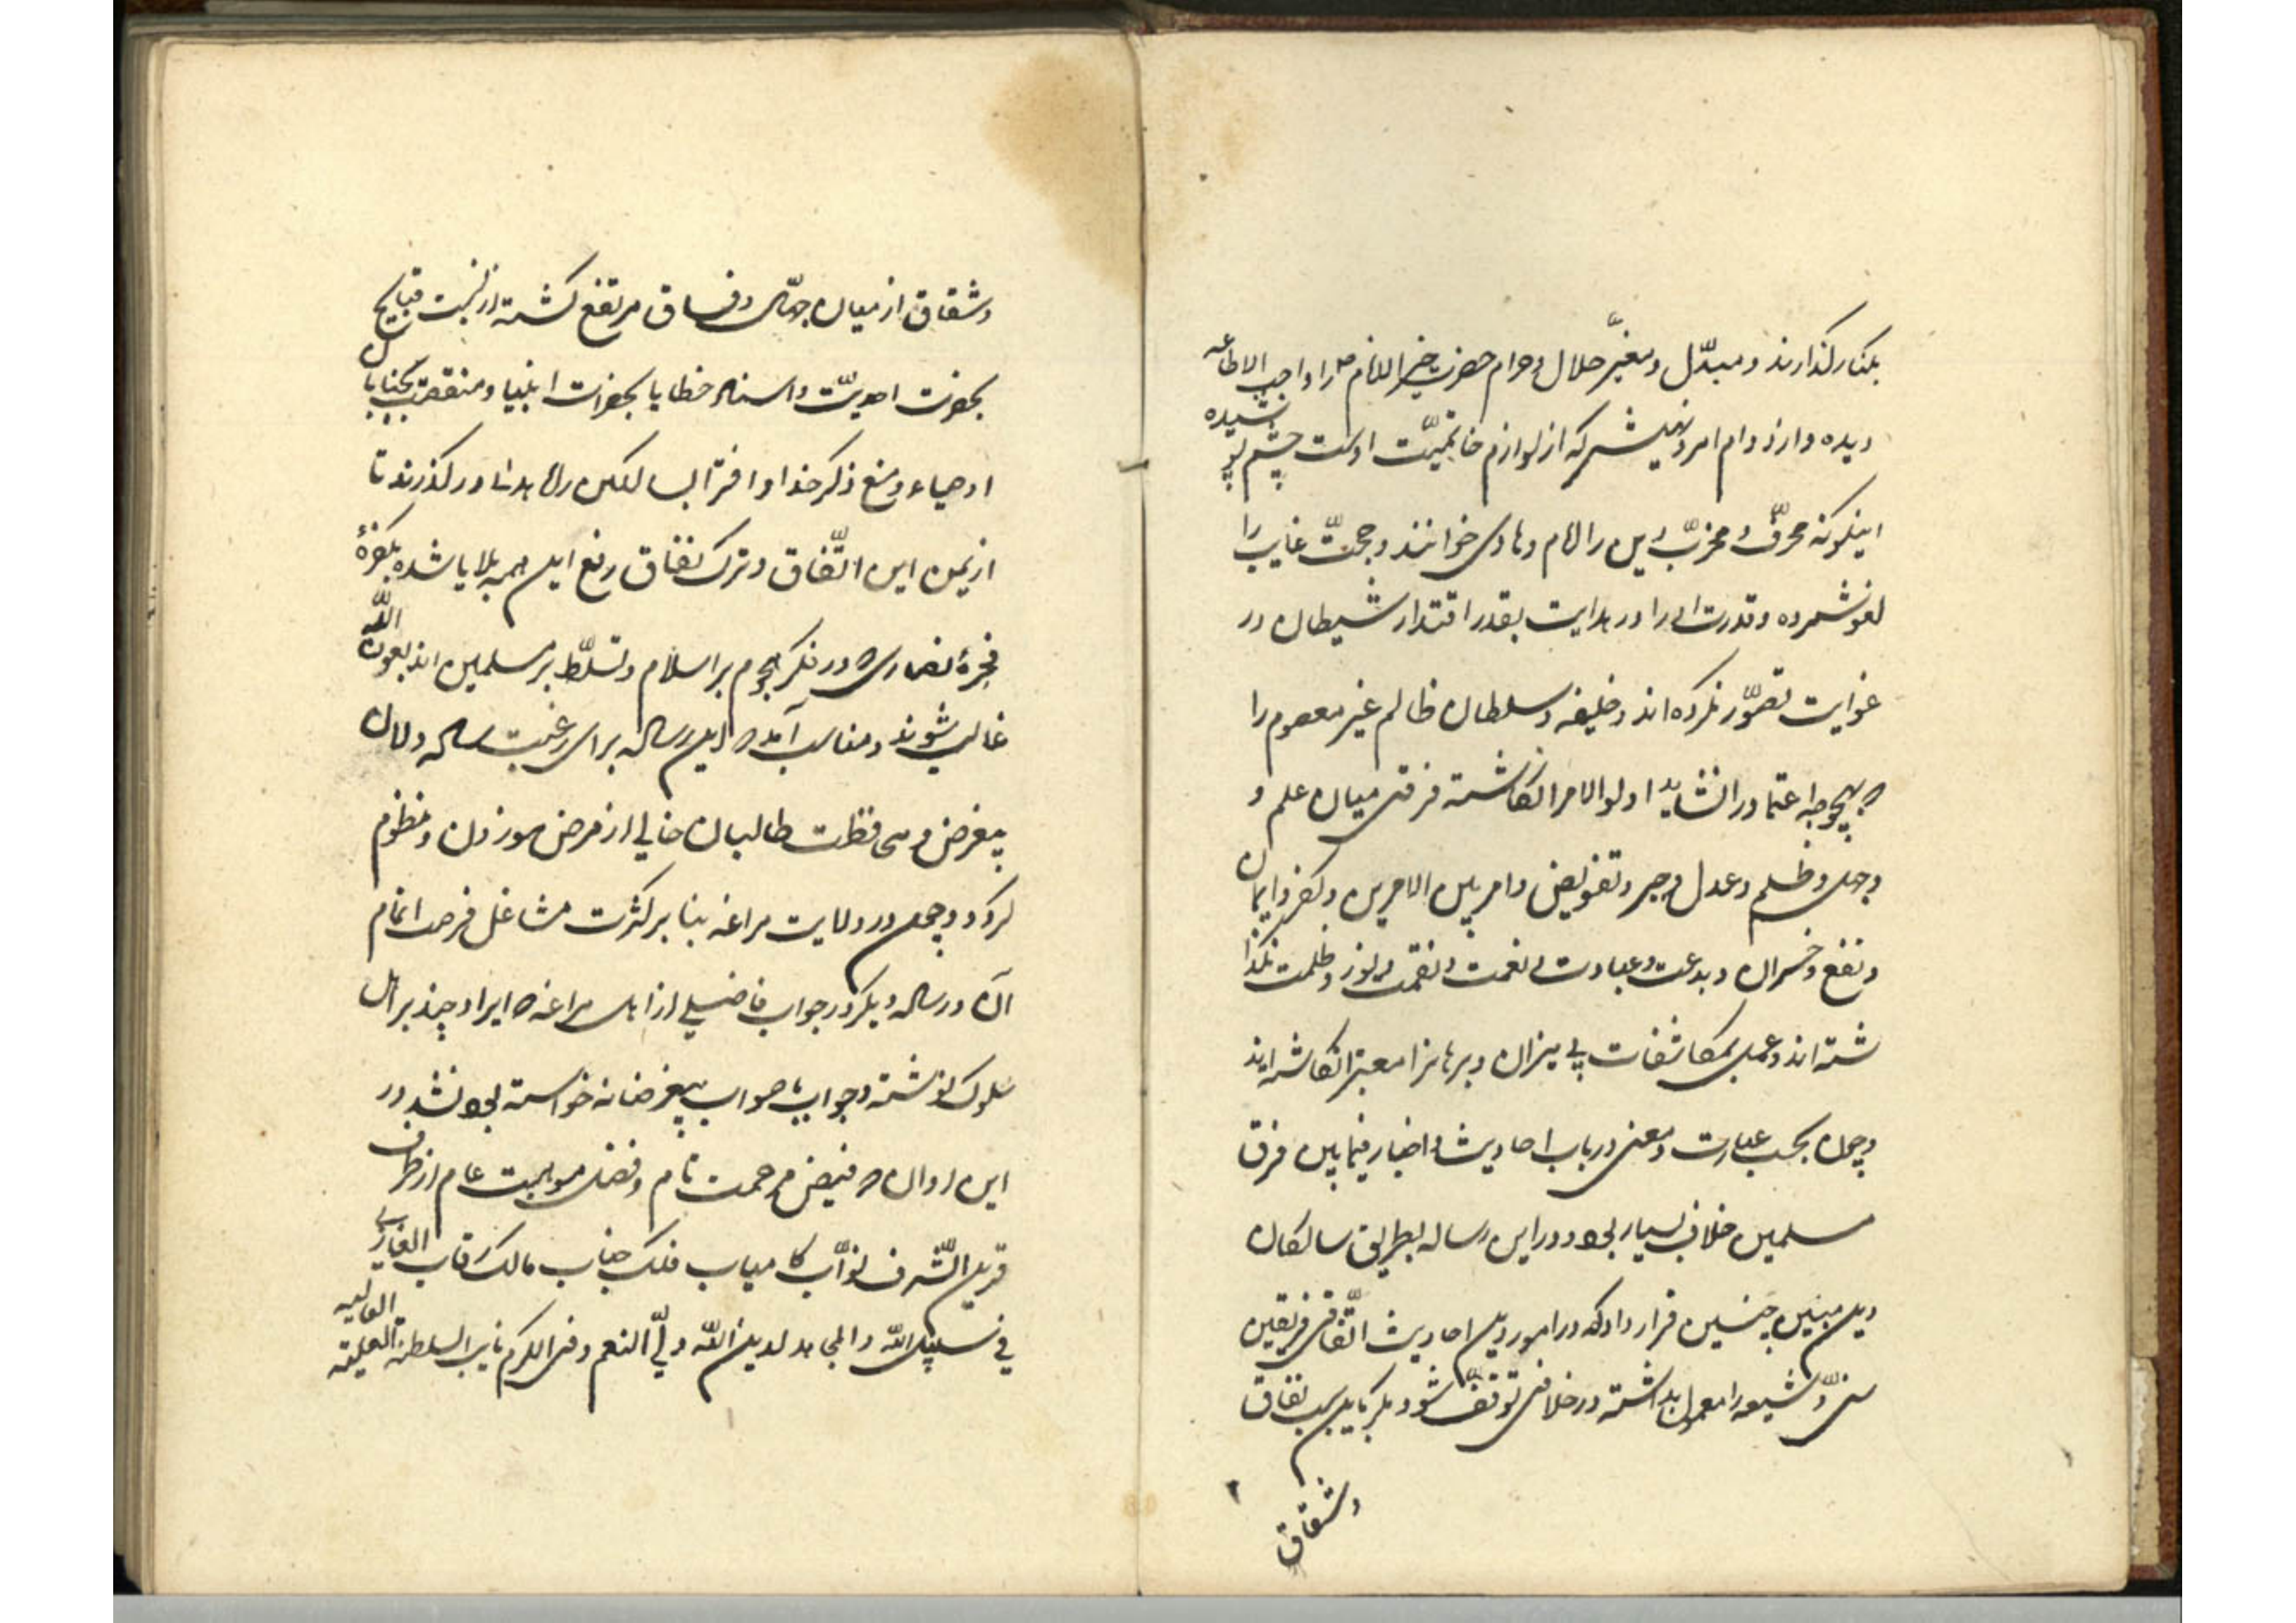 بکنار گذارند و مبدّل و مغیّر حلال و حرام حضرت خیر الانام را واجب الاطاعه
دیده و از دوام امر و نهیش که از لوازم خاتمیّت اوست چشم پوشیده
اینگونه محرّف و مخرّب دین را امام و هادی خوانند و حجّت غایب را
لغو شمرده و قدرت او را در هدایت بقدر اقتدار شیطان در
غوایت تصوّر نکرده‌اند و خلیفه و سلطان ظالم غیر معصوم را
که بهیچوجه اعتماد را نشاید اولوالامر انکاشته فرقی میان علم و
و جهل و ظلم و عدل و جبر و تفویض و امر بین الامرین و کفر و ایمان
و نفع و خسران و بدعت و عبادت و نعمت و نقمت و نور و ظلمت نکذا
شته‌اند و عمل بمکاشفات بی میزان و برهانرا معتبر انکاشته‌اند
و چون بحسب عبارت و معنی در باب احادیث و اخبار فیمابین فرق
مسلمین خلاف بسیار بود در این رساله بطریق سالکان
دین مبین چنین قرار داد که در امور دین احادیث اتّفاقی فریقین
سنّی و شیعه را معمول بداشته در خلافی توقّف شود مکر باین سبب نفاق
و شقاق
و شقاق از میان جهّال و فساق مرتفع کشته از نسبت قبایح
بحضرت احدیّت و اسناد خطایا بحضرات انبیا و منقصت بجنابان
اوصیاء و منع ذکر خدا و افترا بسالکان راه هدی در کذرند تا
از یمن این اتّفاق و ترک نفاق رفع این همه بلایا شده بکفرهٔ
فجرهٔ نصاری که در فکر هجوم بر اسلام و تسلّط بر مسلمین‌اند بعون الله
غالب شوند و مناسب آمد که این رساله برای رغبت سالکان
بیغرض و محافظت طالبان خالی از مرض موزون و منظوم
کردد و چون در ولایت مراغه بنا بر کثرت مشاغل فرصت اتمام
آن و رساله دیکر در جواب فاضلی از اهل مراغه که ایراد چند بر اهل
سلوک نوشته و جواب با صواب بیغرضانه خواسته بود نشد در
این اوان که فیض مرحمت تام و فضل موهبت عام از طرف
قرین الشّرف نوّاب کامیاب فلک جناب مالک رقاب الغازی
فی سبیل الله و المجاهد لدین الله ولیّ النعم وفی الکرم نایب السلطنه العلیه العالیه